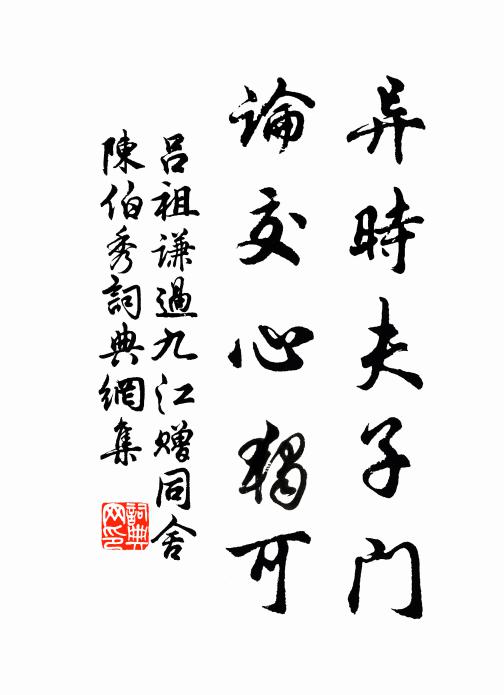 异時夫子门
論交心獨可
吕祖谦過九江赠同舍
陳伯秀詞典網集
詞典网印